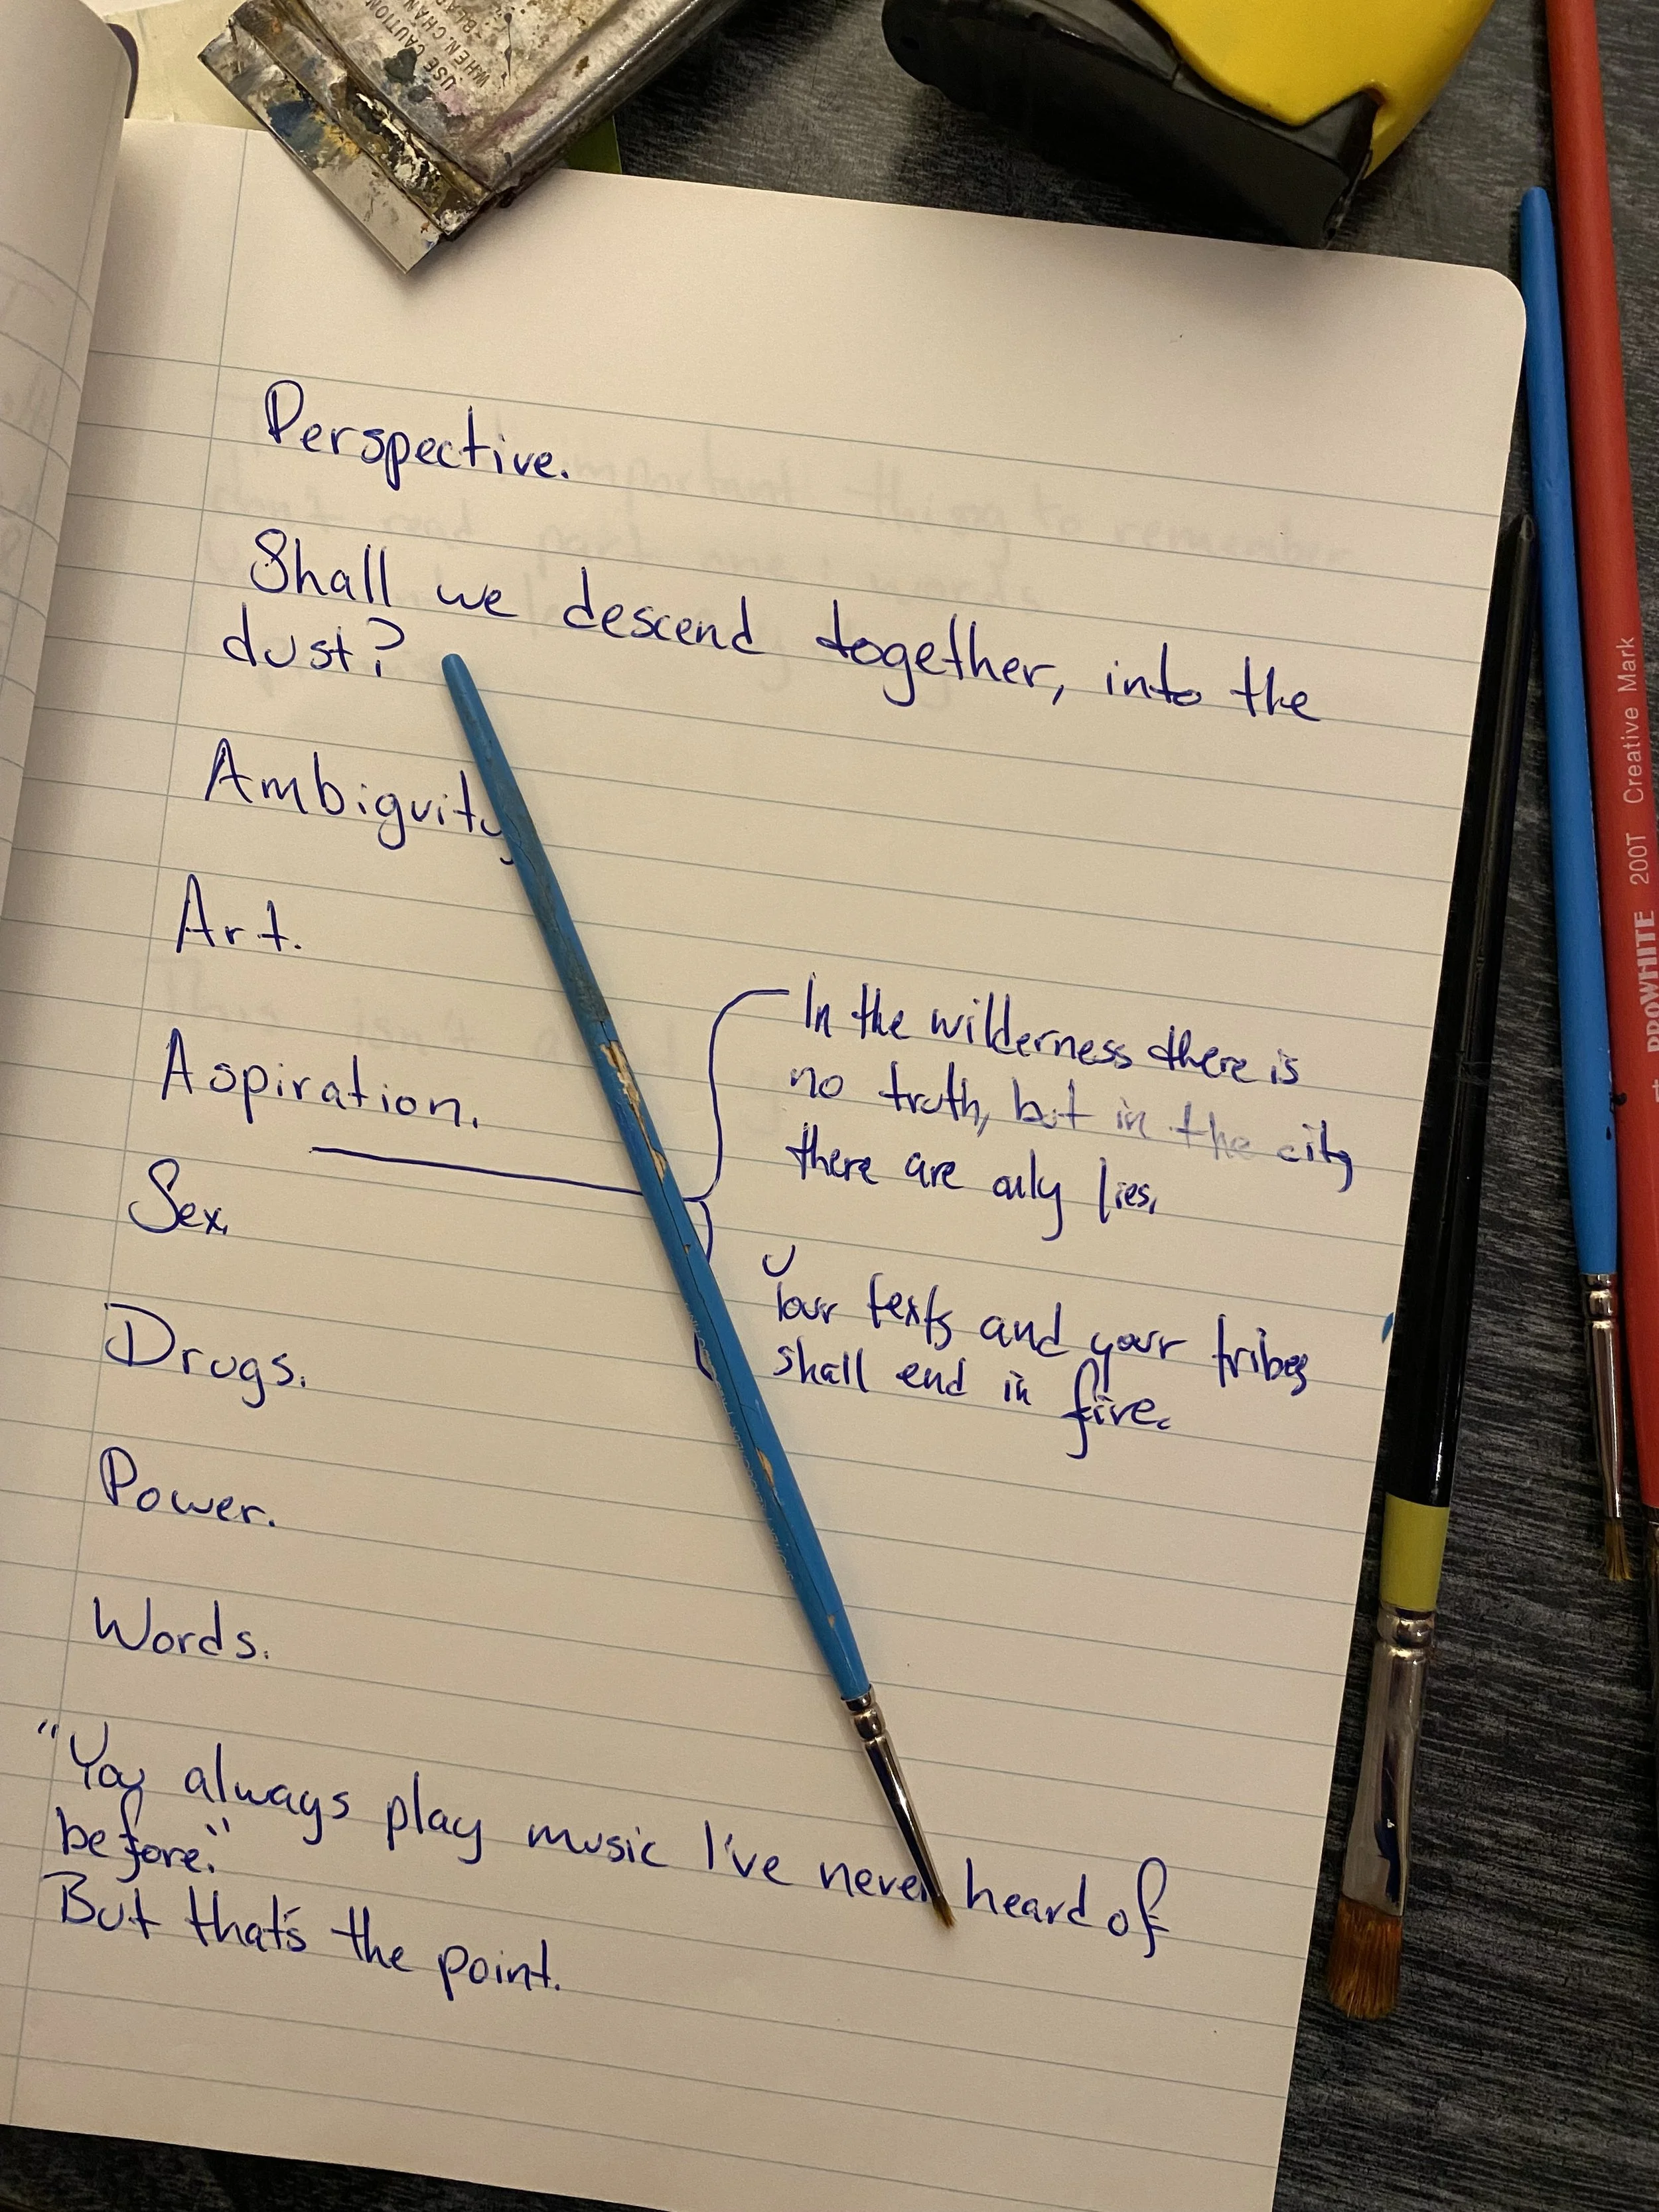 Perspective.
Shall we descend together, into the
dust?
Ambiguity
Art.
Aspiration.
In the wilderness there is
no truth, but in the city
there are only lies.
Sex.
Your texts and your tribes
shall end in fire.
Drugs.
Power.
Words.
"You always play music I've never heard of
before."
But that's the point.
USE CAUTION
WHEN CHAN
BLA
PROWHITE 200T Creative Mark